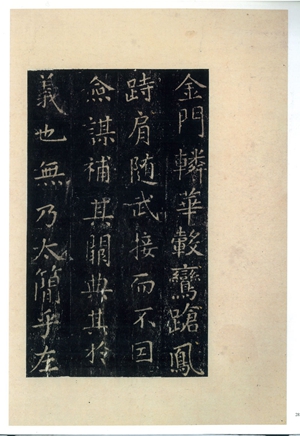 金門轔華轂鸞蹌鳳
跱肩随武接而不因
僉謀補其闕典其於
義也無乃太簡乎在